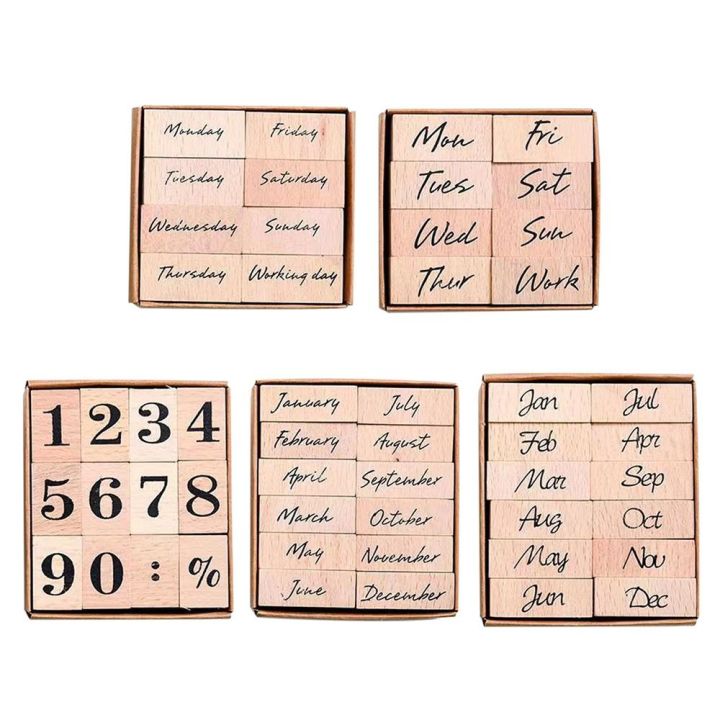 Monday Friday
Tuesday Saturday
Wednesday Sunday
Thursday Working day
Mon Fri
Tues Sat
Wed Sun
Thur Work
1 2 3 4
5 6 7 8
9 0 : %
January July
February August
April September
March October
May November
June December
Jan Jul
Feb Apr
Mar Sep
Aug Oct
May Nov
Jun Dec